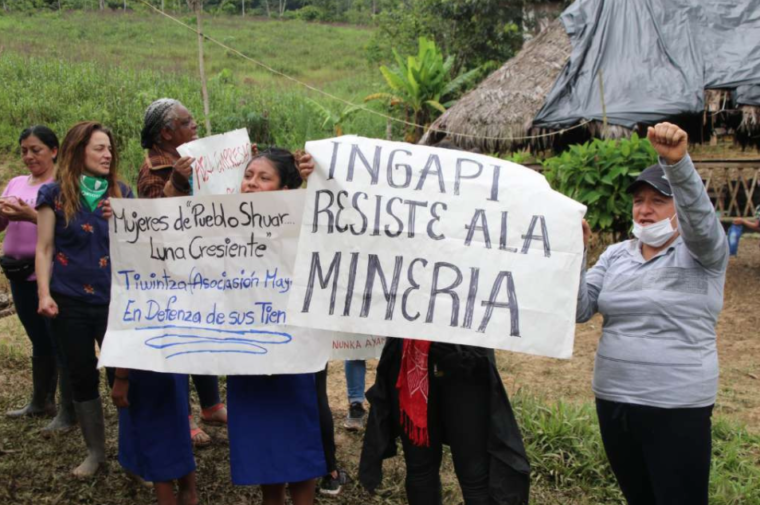 Mujeres de "Pueblo Shuar
Luna Cresiente"
Tiwintza (Asociasión May
En Defenza de sus Tien
INGAPI
RESISTE ALA
MINERIA
NUNKA